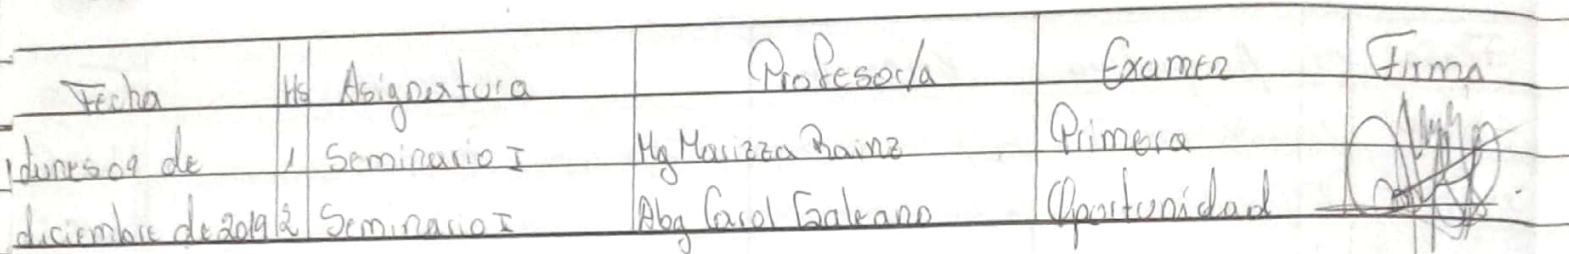 Fecha Hs Asignatura Profesor/a Examen Firma
Lunes 09 de 1 Seminario I Mg Marizza Bainz Primera
diciembre de 2019 2 Seminario I Abg Carol Galeano Oportunidad